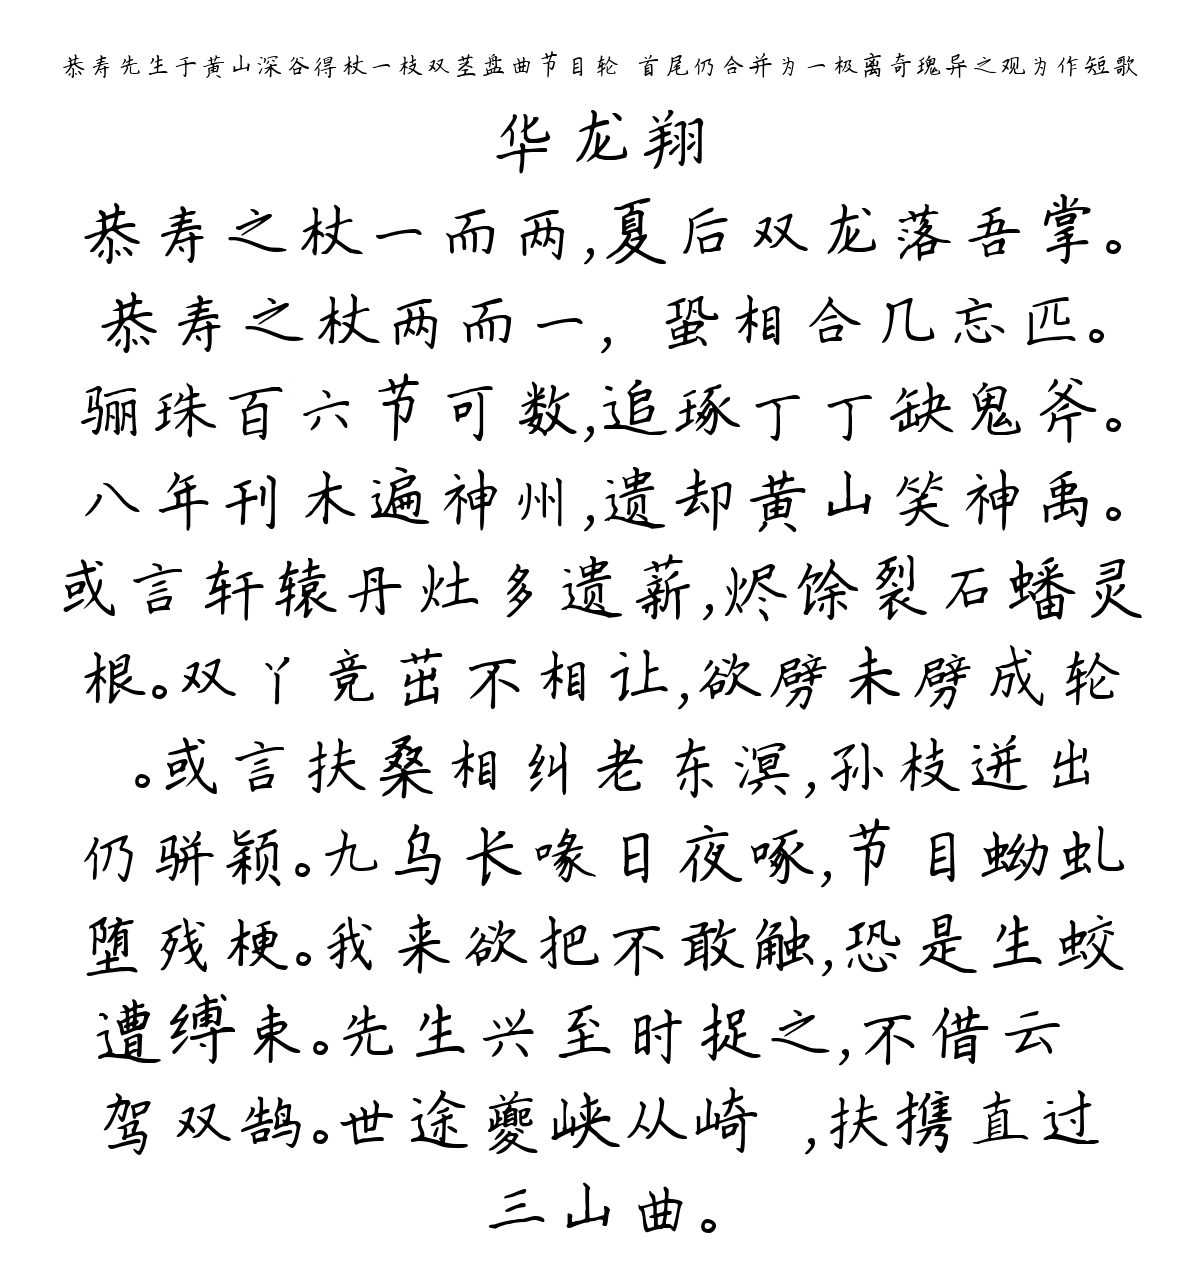 恭寿先生于黄山深谷得杖一枝双茎盘曲节目轮 首尾仍合并为一极离奇瑰异之观为作短歌
华龙翔
恭寿之杖一而两,夏后双龙落吾掌。
恭寿之杖两而一, 蛩相合几忘匹。
骊珠百六节可数,追琢丁丁缺鬼斧。
八年刊木遍神州,遗却黄山笑神禹。
或言轩辕丹灶多遗薪,烬馀裂石蟠灵
根。双丫竞茁不相让,欲劈未劈成轮
。或言扶桑相纠老东溟,孙枝迸出
仍骈颖。九乌长喙日夜啄,节目蚴虬
堕残梗。我来欲把不敢触,恐是生蛟
遭缚束。先生兴至时捉之,不借云
驾双鹄。世途夔峡从崎 ,扶携直过
三山曲。